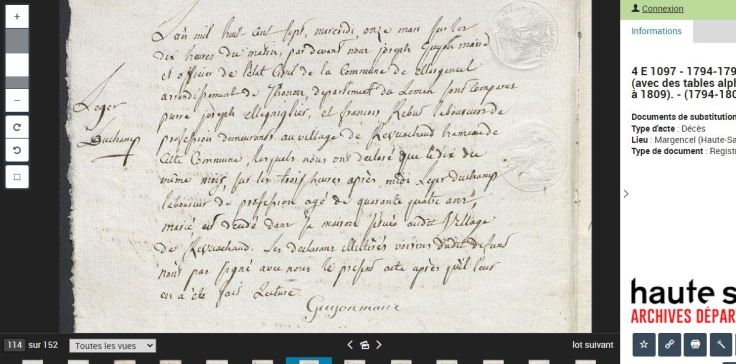 Connexion
Informations
4 E 1097 - 1794-179
(avec des tables alph
à 1809). - (1794-180
Documents de substitution
Type d'acte : Décès
Lieu : Margencel (Haute-Sa
Type de document : Regist
haute s
ARCHIVES DÉPAR
Leger
Duchamp
L'an mil huit cent sept, mercredi, onze mars sur les
dix heures du matin, par devant nous joseph Guyon maire
et officier de l'état Civil de la Commune de Margencel
arrondissement de Thonon département du Leman sont comparus
joseph et françois laboureurs de
profession demeurants au village de hameau de
Cette Commune, lesquels nous ont declaré que le dix du
même mois, sur les trois heures après midi Leger duchamp
laboureur de profession agé de quarante quatre ans,
marié, est décédé dans sa maison audit Village
de Les declarans illitérés voisins dudit défunt
n'ont pas signé avec nous le présent acte après qu'il leur
en a été fait Lecture
Guyon maire
114 sur 152 Toutes les vues lot suivant